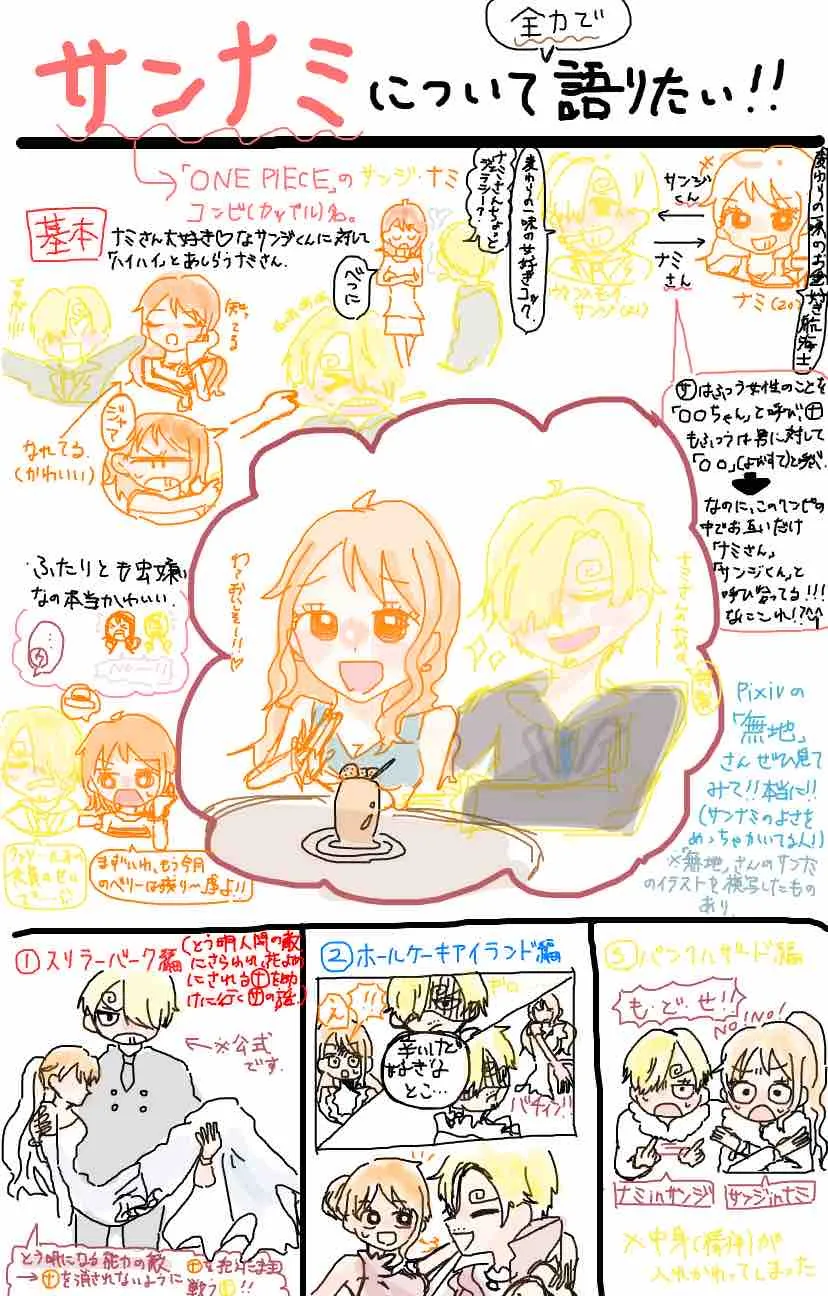 全力で
サンナミについて語りたい!!
「ONE PIECE」のサンジ・ナミ
コンビ(カップル)名。
基本
ナミさん大好き♡なサンジくんに対して
「ハイハイ」とあしらうナミさん。
ナミさんちょっと
ジェラシー?
べつに
麦わりの一味の女好きコック。
サンジ(21)
サンジ
くん
ナミ
さん
麦わりの一味のお金好き航海士
ナミ(20)
知ってる
なれてる。
(かわいい)
ジャマ
サはふつう女性のことを
「〇〇ちゃん」と呼び、ナ
もふつうは男に対して
「〇〇」(よびすて)と呼ぶ。
なのに、このワンピの
中でお互いだけ
「ナミさん」
「サンジくん」と
呼び合ってる!!!
なにこれ!?
ふたりとも虫嫌い
なの本当かわいい。
NO—!!
わーおいしそー!!♡
Pixivの
「無地」
さんぜひ見て
みて!!本当に!!
(サンナミのよさを
めっちゃかいてるん!!)
※「無地」さんのサンナミ
のイラストを模写したもの
あり。
まずいわ、もう今月
のベリーは残り一桁よ!!
①スリラーバーク編
(とう明人間の敵
にさらわれ、花よめ
にされるナを助
けに行くサの話。)
←※公式
です。
とう明になる能力の敵
→ナを消されないように
戦うサ!!
②ホールケーキアイランド編
え
!!
幸いした
好きな
とこ…
バチィン!!
③パンクハザード編
も・ど・せ!!
NO!NO!
ナミinサンジ
サンジinナミ
※中身(精神)が
入れかわってしまった